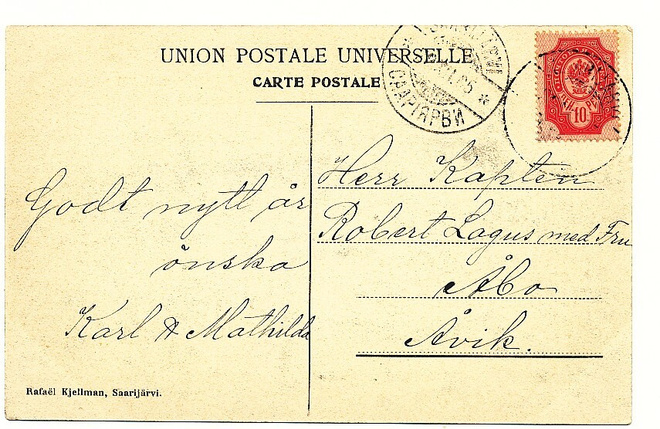 UNION POSTALE UNIVERSELLE
CARTE POSTALE
СААРІЯРВИ
10
Godt nytt år
önska
Karl & Mathilda
Herr Kapten
Robert Lagus med Fru
Åbo
Åvik.
Rafaël Kjellman, Saarijärvi.